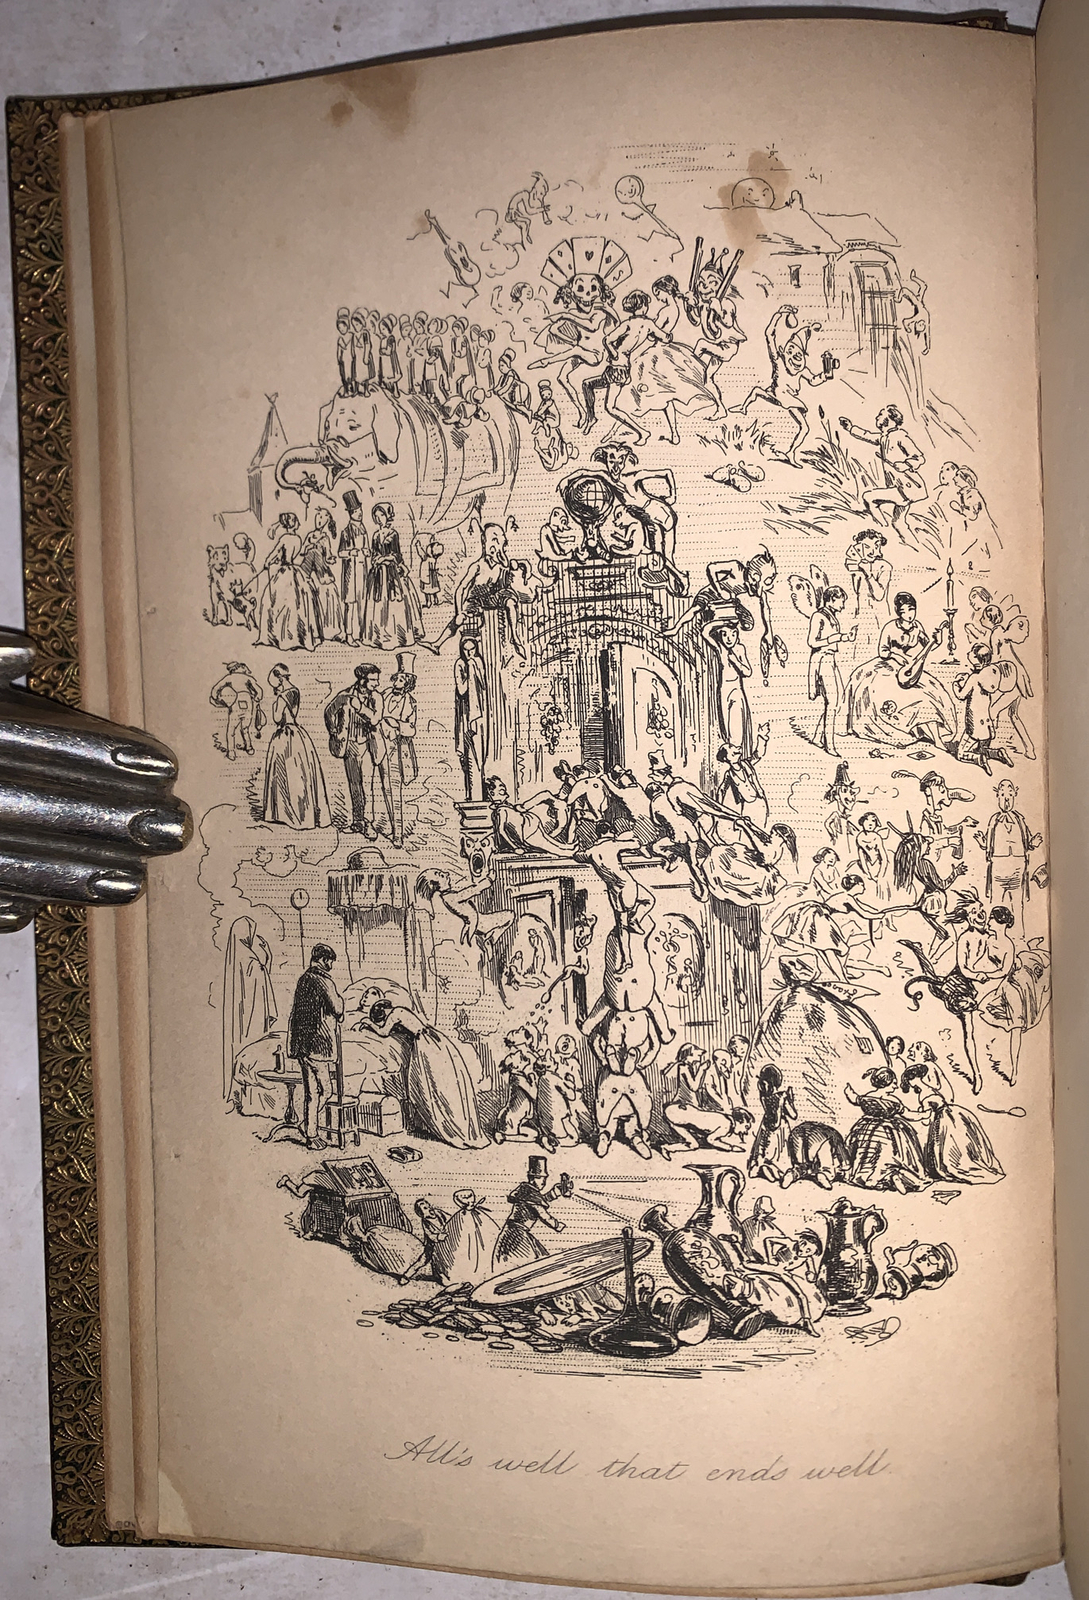 All's well that ends well